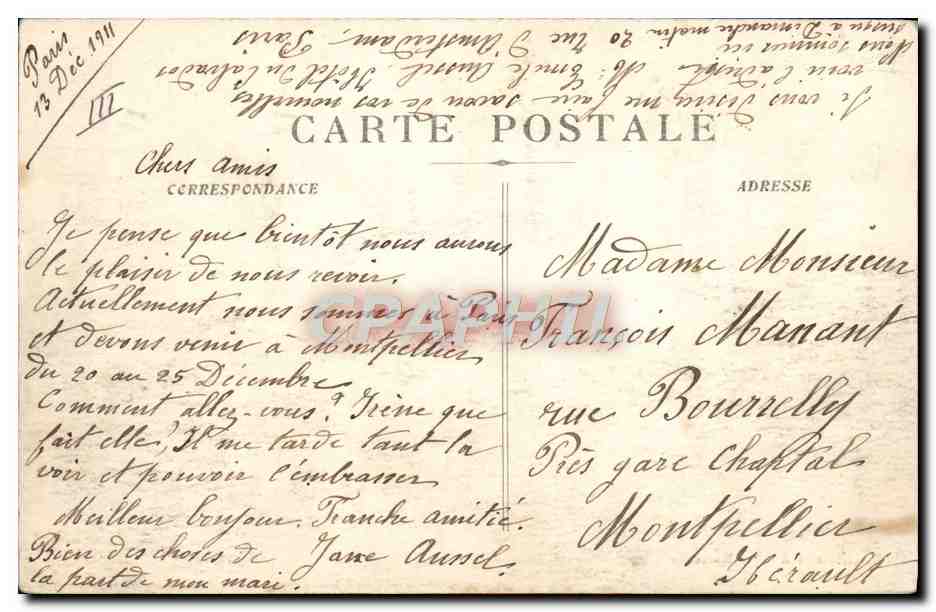 Paris
13 Déc. 1911
III
Si vous désirez me faire savoir de vos nouvelles
voici l'adresse M. Emile Aussel, Hôtel du Calvados
20 rue d'Amsterdam, Paris
Nous sommes ici
jusqu'à Dimanche matin
CARTE POSTALE
Chers amis
CORRESPONDANCE
ADRESSE
Je pense que bientôt nous aurons
le plaisir de nous revoir.
Actuellement nous sommes à Paris
et devons venir à Montpellier
du 20 au 25 Décembre
Comment allez-vous? Irène que
fait elle? Il me tarde tant la
voir et pouvoir l'embrasser
Meilleur bonjour. Franche amitié.
Bien des choses de Jane Aussel.
la part de mon mari.
Madame Monsieur
François Manant
rue Bourrelly
Près gare Chaptal
Montpellier
Hérault
CPAPHIL